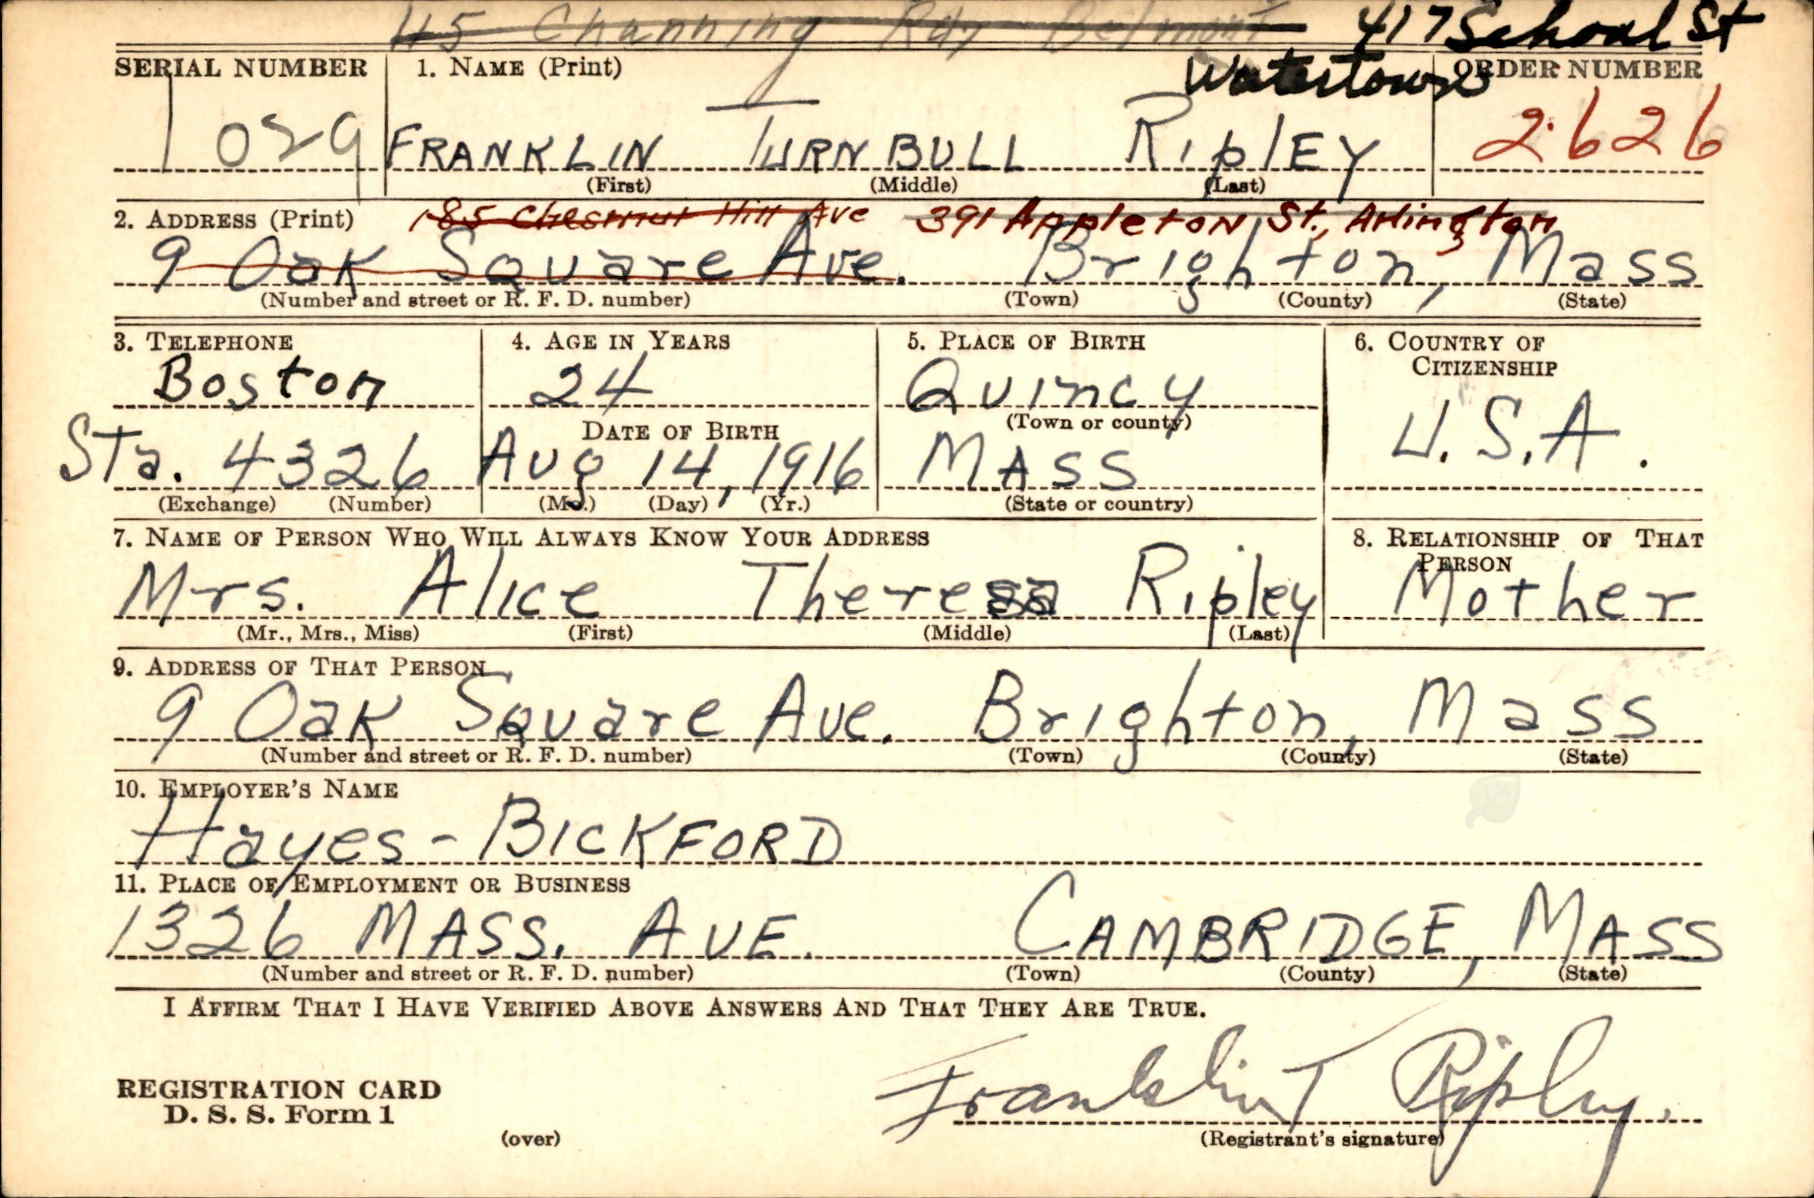 45 Channing Rd, Belmont 417 School St
Watertown
SERIAL NUMBER 1. NAME (Print) ORDER NUMBER
1029 FRANKLIN TURNBULL RIPLEY 2626
(First) (Middle) (Last)
2. ADDRESS (Print) 185 Chestnut Hill Ave 391 Appleton St., Arlington
9 Oak Square Ave. Brighton, Mass
(Number and street or R. F. D. number) (Town) (County) (State)
3. TELEPHONE 4. AGE IN YEARS 5. PLACE OF BIRTH 6. COUNTRY OF CITIZENSHIP
Boston 24 Quincy
DATE OF BIRTH (Town or county) U.S.A.
Sta. 4326 Aug 14, 1916 MASS
(Exchange) (Number) (Mo.) (Day) (Yr.) (State or country)
7. NAME OF PERSON WHO WILL ALWAYS KNOW YOUR ADDRESS 8. RELATIONSHIP OF THAT PERSON
Mrs. Alice Theresa Ripley Mother
(Mr., Mrs., Miss) (First) (Middle) (Last)
9. ADDRESS OF THAT PERSON
9 Oak Square Ave. Brighton, Mass
(Number and street or R. F. D. number) (Town) (County) (State)
10. EMPLOYER'S NAME
Hayes-BICKFORD
11. PLACE OF EMPLOYMENT OR BUSINESS
1326 MASS. AVE. CAMBRIDGE, MASS
(Number and street or R. F. D. number) (Town) (County) (State)
I AFFIRM THAT I HAVE VERIFIED ABOVE ANSWERS AND THAT THEY ARE TRUE.
REGISTRATION CARD
D. S. S. Form 1 Franklin T Ripley.
(over) (Registrant's signature)